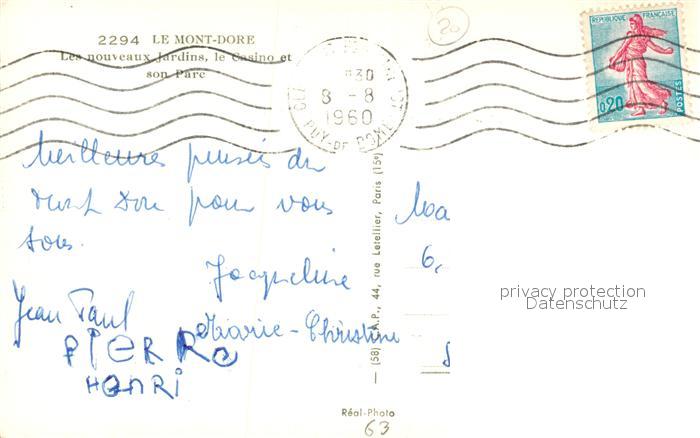 2294 LE MONT-DORE
Les nouveaux Jardins, le Casino et
son Parc
20
30
8 - 8
1960
PUY-DE-DOME
REPUBLIQUE FRANÇAISE
0,20
POSTES
Meilleures pensées du
Mont Dore pour vous
tous.
Jacqueline
Jean Paul
Marie-Christine
PIERRe
HenRi
6,
privacy protection
Datenschutz
44, rue Letellier, Paris (15e)
Réal-Photo
63